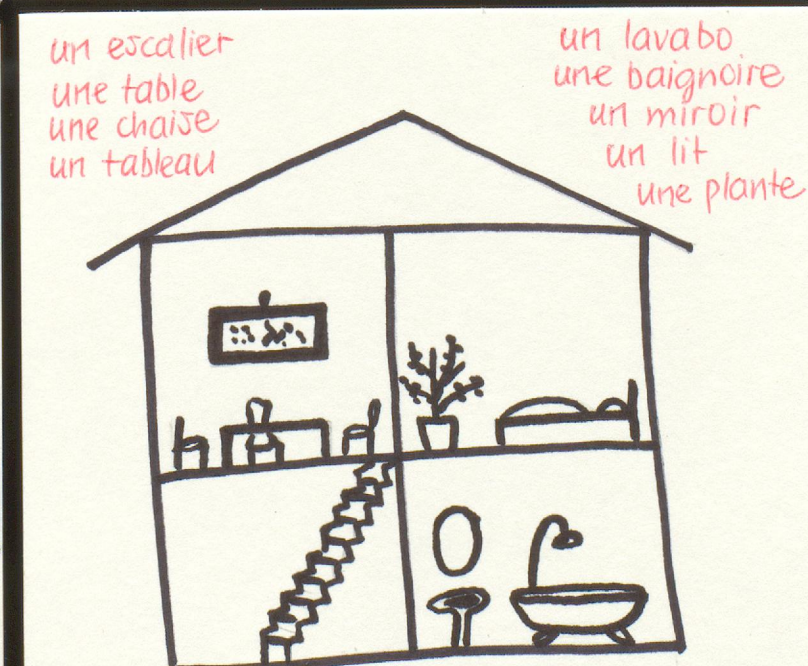 un escalier
une table
une chaise
un tableau
un lavabo
une baignoire
un miroir
un lit
une plante